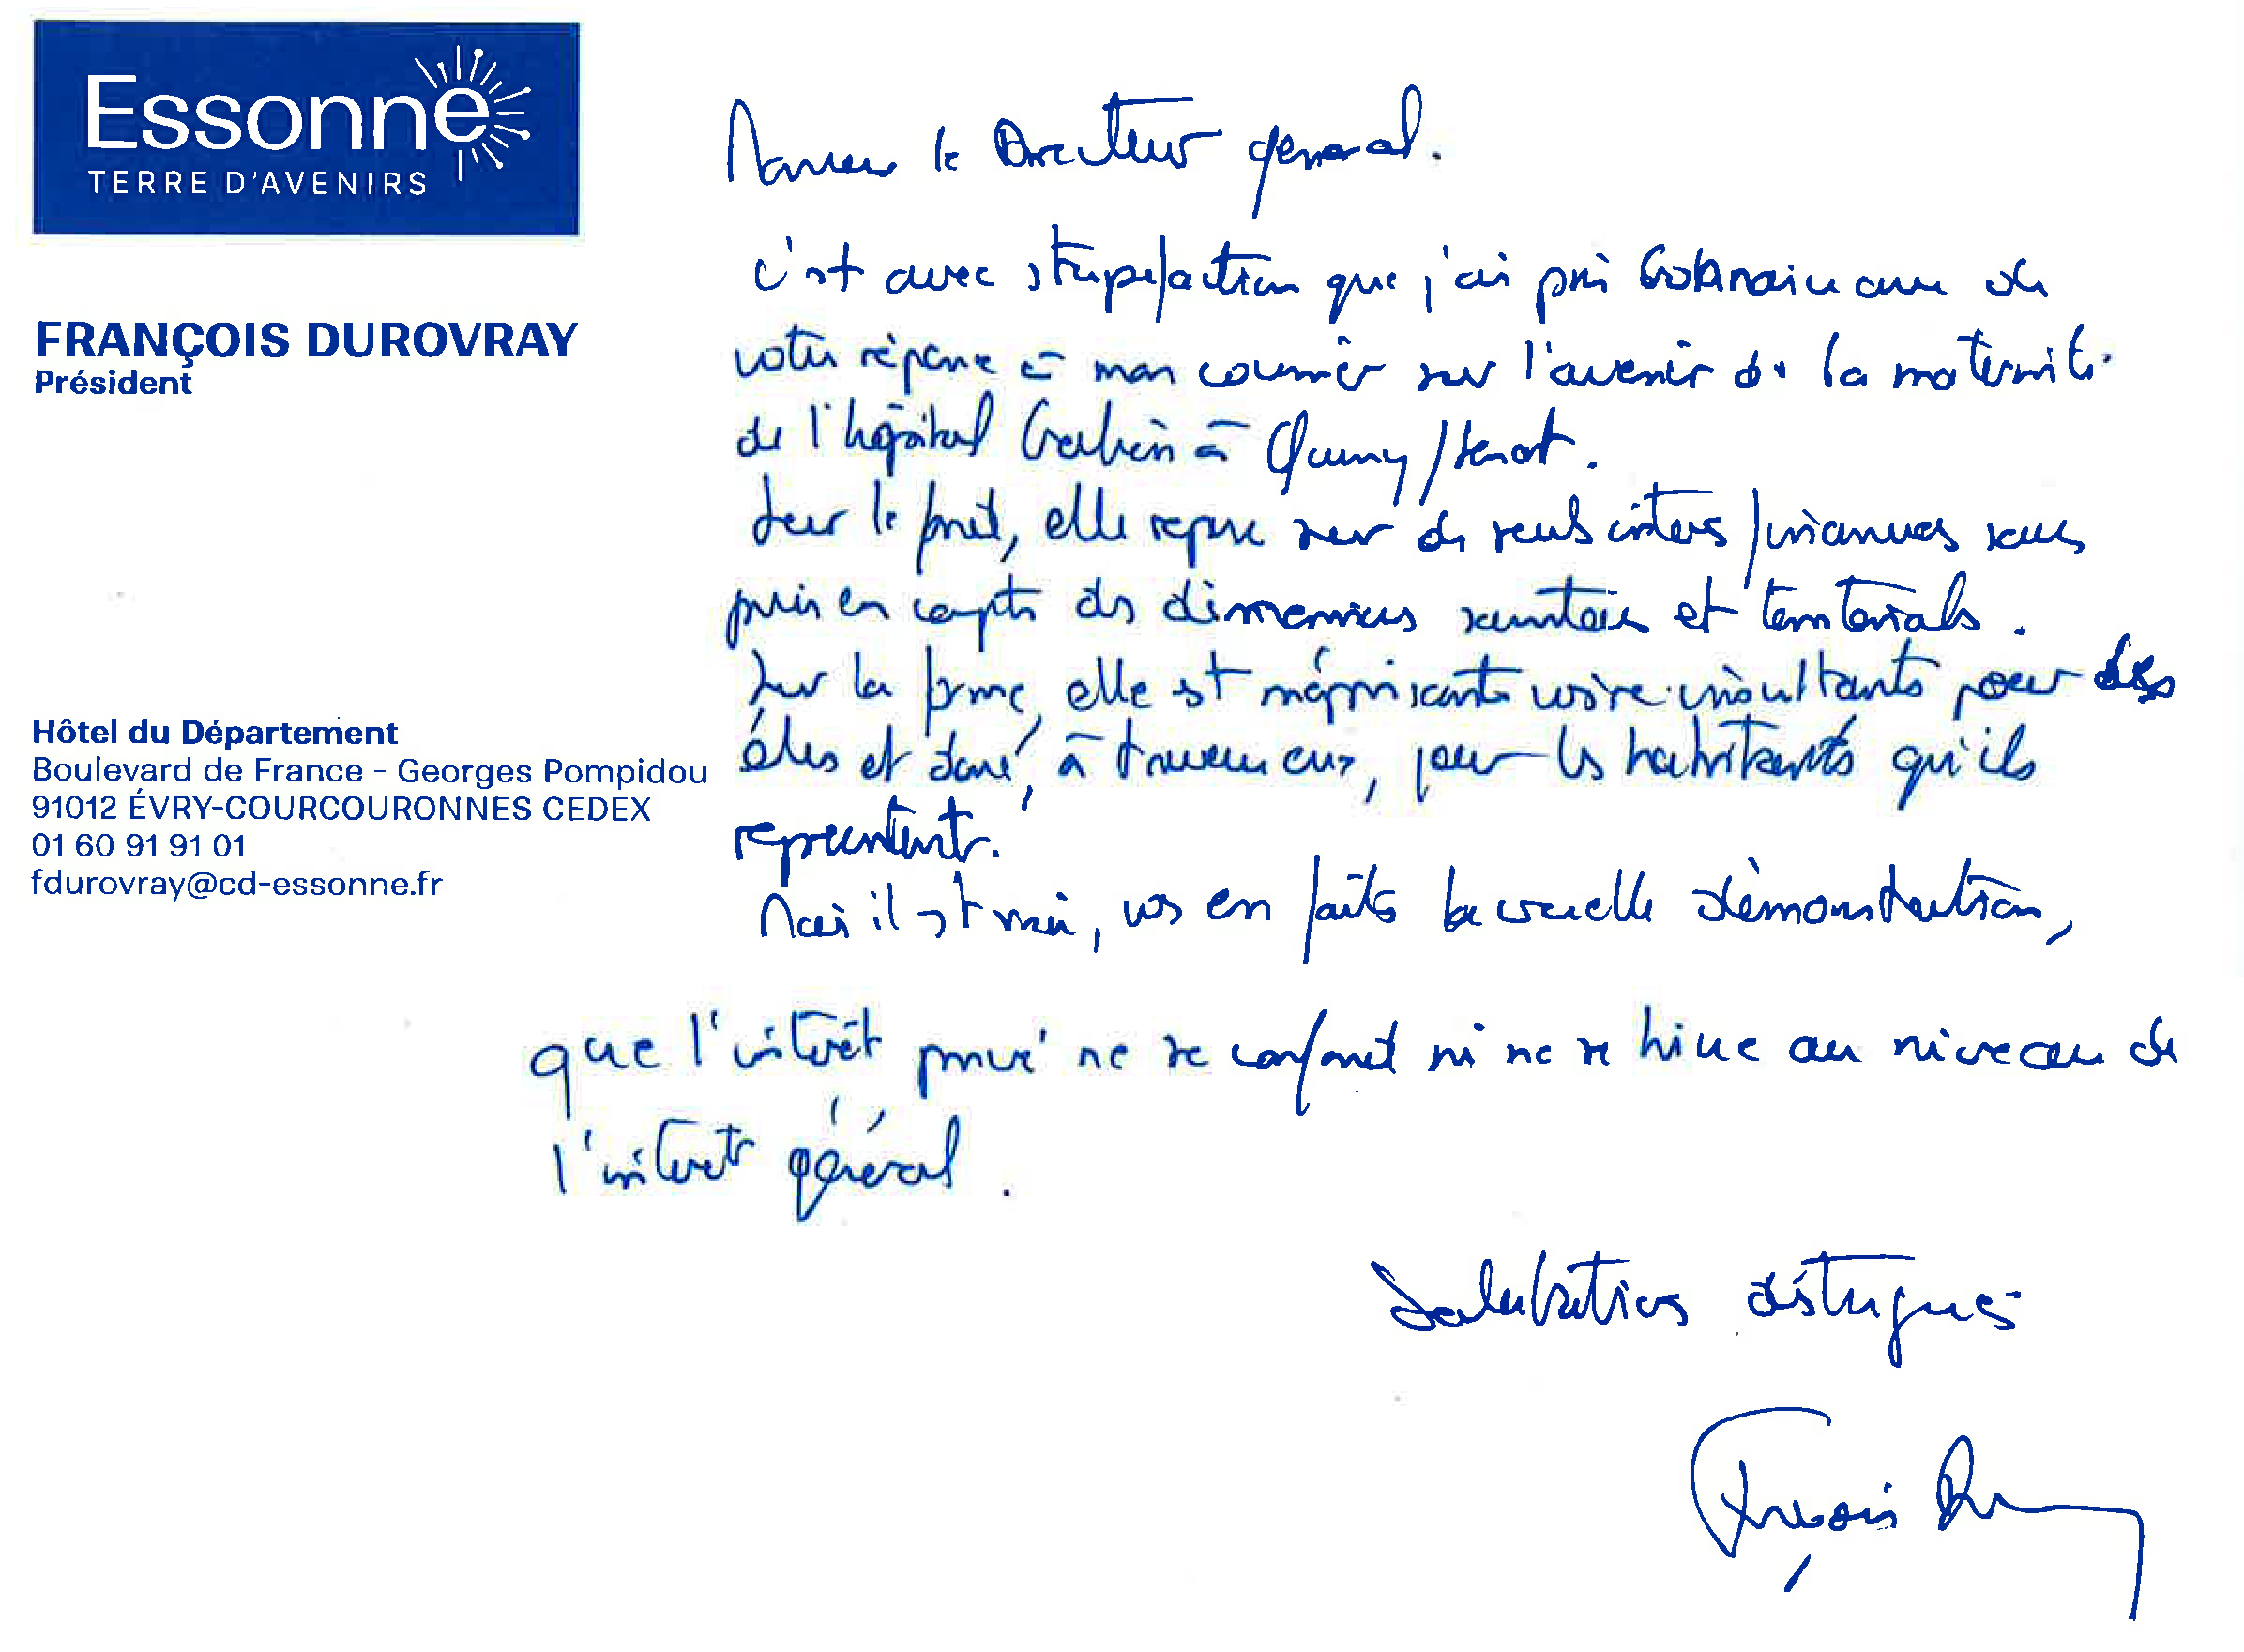 Essonne
TERRE D'AVENIRS
FRANÇOIS DUROVRAY
Président
Hôtel du Département
Boulevard de France - Georges Pompidou
91012 ÉVRY-COURCOURONNES CEDEX
01 60 91 91 01
fdurovray@cd-essonne.fr
Monsieur le Directeur général.
C'est avec stupéfaction que j'ai pris connaissance de
votre réponse à mon courrier sur l'avenir de la maternité
de l'hôpital Galien à Quincy/Senart.
Sur le fond, elle repose sur de seuls critères financiers sans
prise en compte des dimensions sanitaires et territoriales.
Sur la forme, elle est méprisante voire insultante pour des
élus et donc, à travers eux, pour les habitants qu'ils
représentent.
Mais il est vrai, vs en faites la cruelle démonstration,
que l'intérêt privé ne se confond ni ne se hisse au niveau de
l'intérêt général.
Salutations distinguées
François